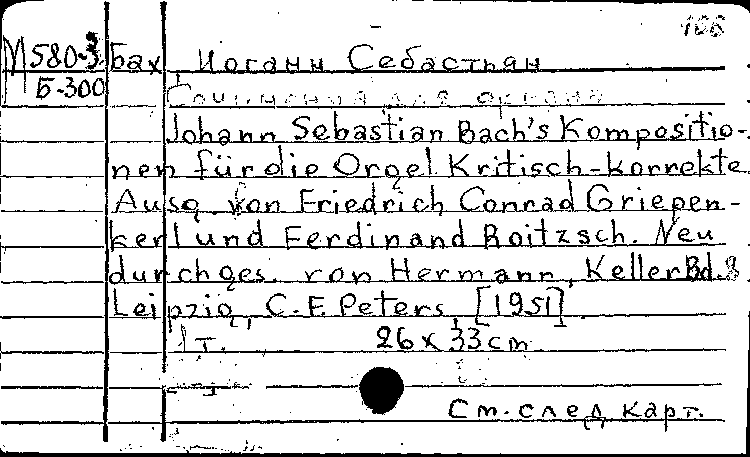 166
М580-3 Бах, Иоганн Себастьян
Б-300
Сочинения для органа
Johann Sebastian Bach's Kompositio-
nen für die Orgel Kritisch-korrekte
Ausg. von Friedrich Conrad Griepen-
kerl und Ferdinand Roitzsch. Neu
durchges. von Hermann, Keller Bd.8
Leipzig, C.F. Peters, [1951]
1 т. 26 x 33 cm
См. след. карт.